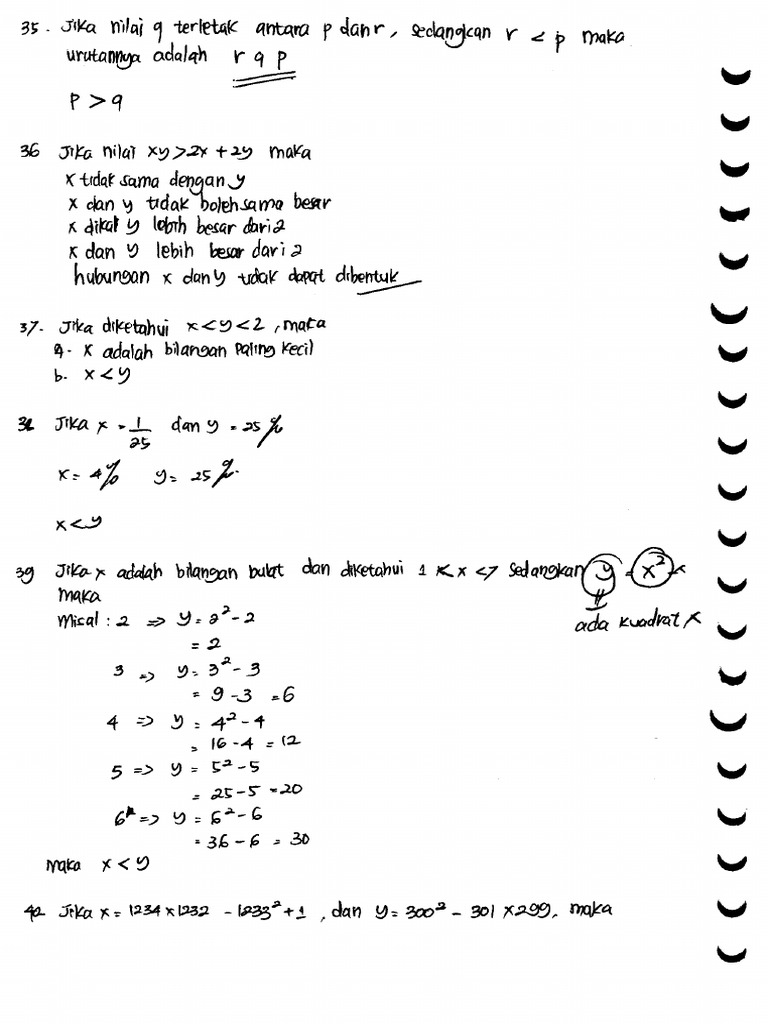 35. Jika nilai q terletak antara p dan r, sedangkan r < p maka
urutannya adalah r q p
p > q
36 Jika nilai xy > 2x + 2y maka
x tidak sama dengan y
x dan y tidak boleh sama besar
x dikali y lebih besar dari 2
x dan y lebih besar dari 2
hubungan x dan y tidak dapat dibentuk
37. Jika diketahui x < y < 2, maka
a. x adalah bilangan paling kecil
b. x < y
Jika x = 1/25 dan y = 25 %
x = 4% y = 25 %
x < y
39 Jika x adalah bilangan bulat dan diketahui 1 < x < 7 sedangkan y = x² - x
maka
ada kuadrat x
misal : 2 => y = 2² - 2
= 2
3 => y = 3² - 3
= 9 - 3 = 6
4 => y = 4² - 4
= 16 - 4 = 12
5 => y = 5² - 5
= 25 - 5 = 20
6 => y = 6² - 6
= 36 - 6 = 30
maka x < y
Jika x = 1234 x 1232 - 1233² + 1, dan y = 300² - 301 x 299, maka